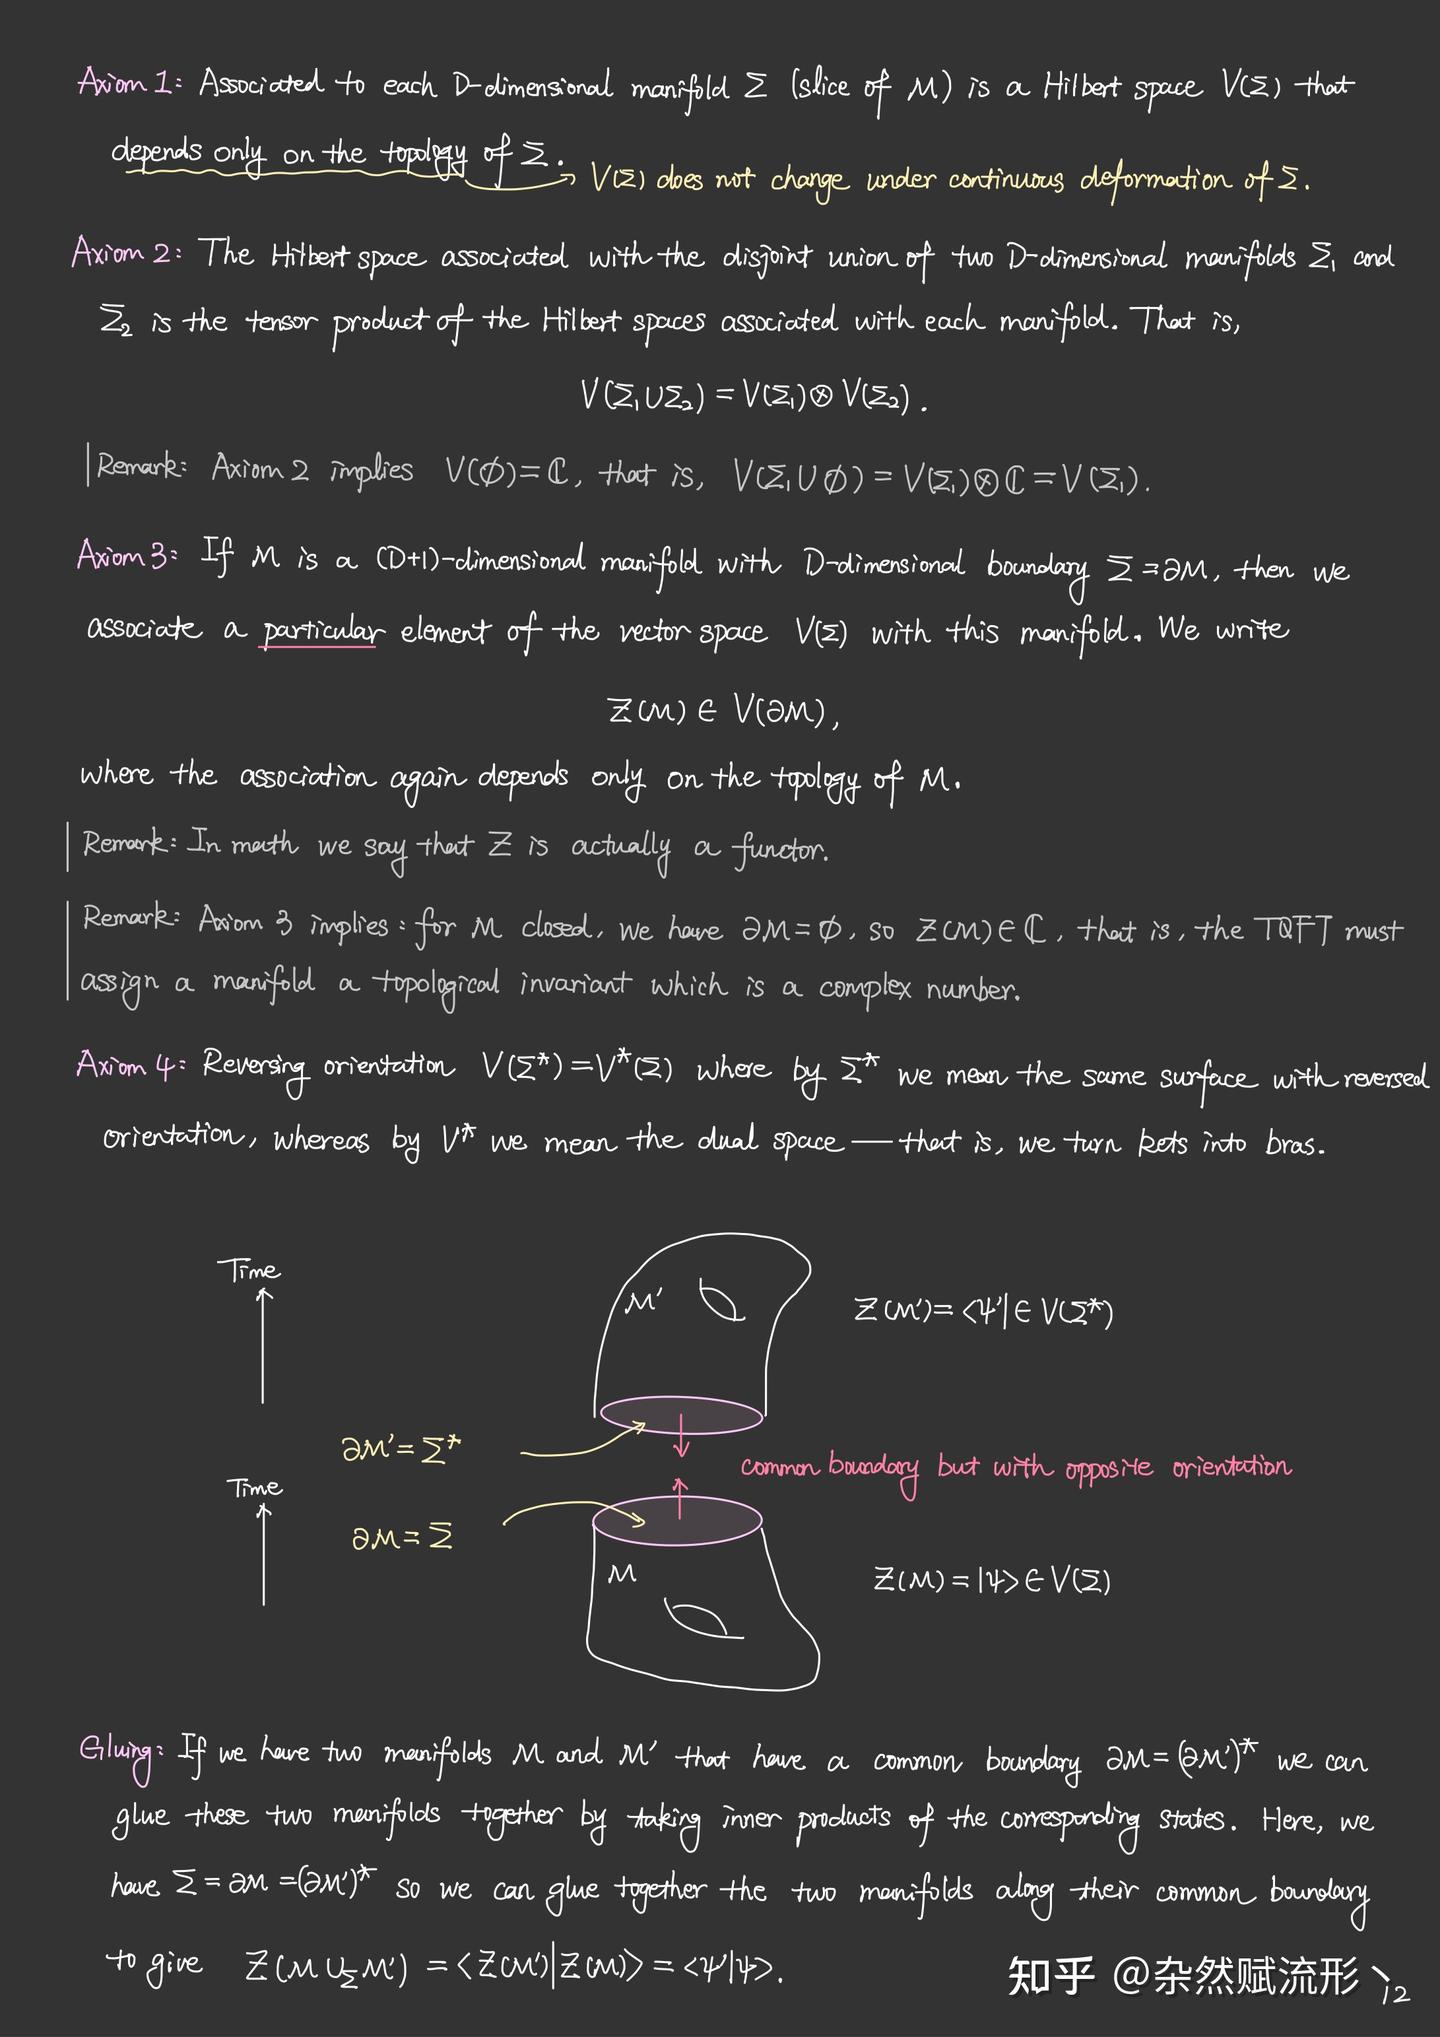 Axiom 1: Associated to each D-dimensional manifold Σ (slice of M) is a Hilbert space V(Σ) that
depends only on the topology of Σ.
V(Σ) does not change under continuous deformation of Σ.
Axiom 2: The Hilbert space associated with the disjoint union of two D-dimensional manifolds Σ₁ and
Σ₂ is the tensor product of the Hilbert spaces associated with each manifold. That is,
V(Σ₁∪Σ₂) = V(Σ₁)⊗V(Σ₂).
Remark: Axiom 2 implies V(∅)=ℂ, that is, V(Σ₁∪∅) = V(Σ₁)⊗ℂ=V(Σ₁).
Axiom 3: If M is a (D+1)-dimensional manifold with D-dimensional boundary Σ=∂M, then we
associate a particular element of the vector space V(Σ) with this manifold. We write
Z(M) ∈ V(∂M),
where the association again depends only on the topology of M.
Remark: In math we say that Z is actually a functor.
Remark: Axiom 3 implies: for M closed, we have ∂M=∅, so Z(M)∈ℂ, that is, the TQFT must
assign a manifold a topological invariant which is a complex number.
Axiom 4: Reversing orientation V(Σ*)=V*(Σ) where by Σ* we mean the same surface with reversed
orientation, whereas by V* we mean the dual space — that is, we turn kets into bras.
Time
M′
Z(M′)=⟨ψ′|∈V(Σ*)
∂M′=Σ*
common boundary but with opposite orientation
Time
∂M=Σ
M
Z(M)=|ψ⟩∈V(Σ)
Gluing: If we have two manifolds M and M′ that have a common boundary ∂M=(∂M′)* we can
glue these two manifolds together by taking inner products of the corresponding states. Here, we
have Σ=∂M=(∂M′)* so we can glue together the two manifolds along their common boundary
to give Z(M∪_Σ M′) = ⟨Z(M′)|Z(M)⟩ = ⟨ψ′|ψ⟩.
知乎 @杂然赋流形
12